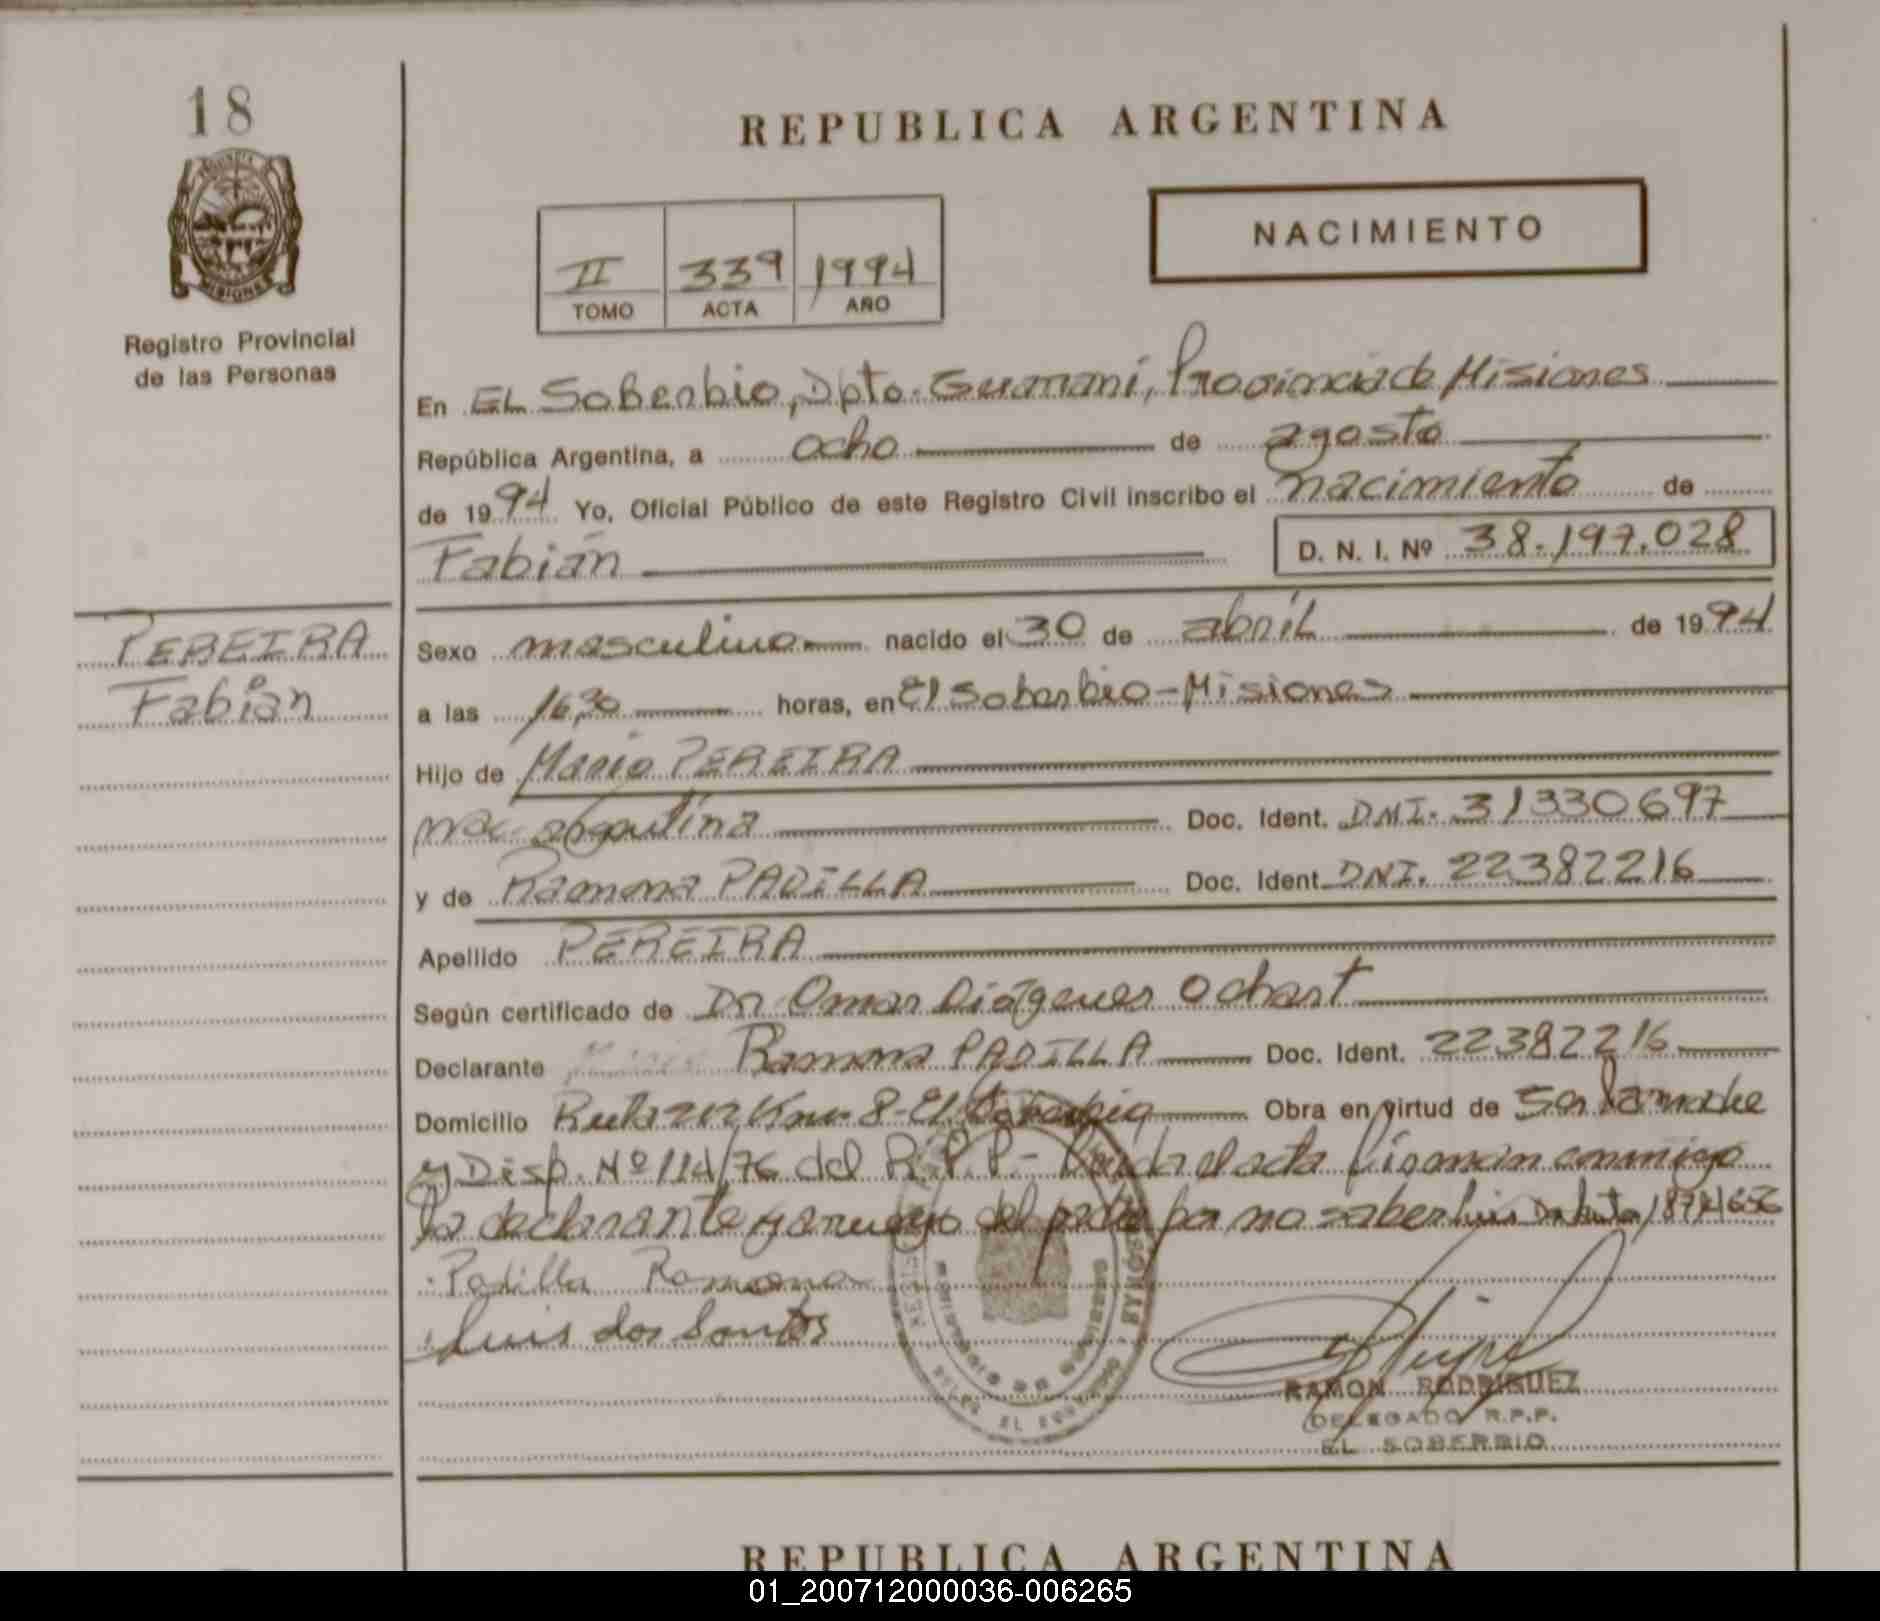 18
REPUBLICA ARGENTINA
NACIMIENTO
II 339 1994
TOMO ACTA AÑO
MISIONES
Registro Provincial
de las Personas
En EL Soberbio, Dpto. Guaraní, Provincia de Misiones
República Argentina, a ocho de agosto
de 1994 Yo, Oficial Público de este Registro Civil inscribo el nacimiento de
Fabián
D. N. I. Nº 38.197.028
PEREIRA
Fabián
Sexo masculino nacido el 30 de abril de 1994
a las 16,30 horas, en El Soberbio-Misiones
Hijo de Mario PEREIRA
nac. argentina Doc. Ident. DNI. 31330697
y de Ramona PADILLA Doc. Ident. DNI. 22382216
Apellido PEREIRA
Según certificado de Dr. Omar Diógenes Ochart
Declarante Ramona PADILLA Doc. Ident. 22382216
Domicilio Ruta 212 Km 8-El Soberbio Obra en virtud de ser la madre
y Disp. Nº 114/76 del R.P.P.- Leída el acta firman conmigo
la declarante y a ruego del padre por no saber Luis
Padilla Ramona
Luis dos Santos
RAMON RODRIGUEZ
DELEGADO R.P.P.
EL SOBERBIO
REPUBLICA ARGENTINA
01_200712000036-006265